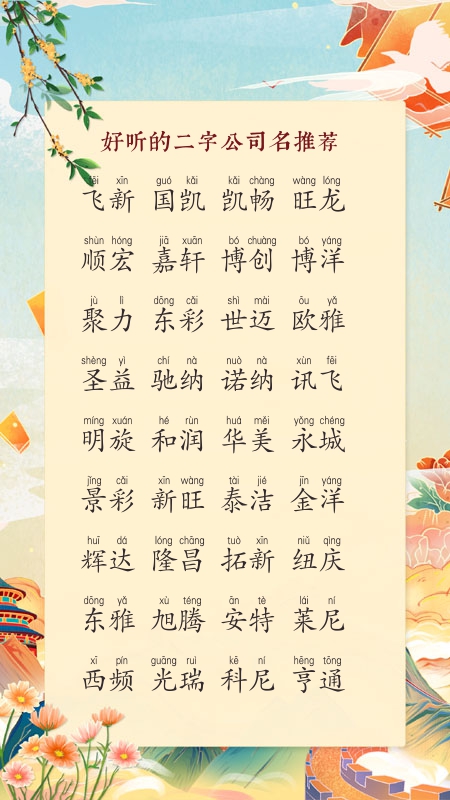 好听的二字公司名推荐
fēi xīn guó kǎi kǎi chàng wàng lóng
飞新 国凯 凯畅 旺龙
shùn hóng jiā xuān bó chuàng bó yáng
顺宏 嘉轩 博创 博洋
jù lì dōng cǎi shì mài ōu yǎ
聚力 东彩 世迈 欧雅
shèng yì chí nà nuò nà xùn fēi
圣益 驰纳 诺纳 讯飞
míng xuán hé rùn huá měi yǒng chéng
明旋 和润 华美 永城
jǐng cǎi xīn wàng tài jié jīn yáng
景彩 新旺 泰洁 金洋
huī dá lóng chāng tuò xīn niǔ qìng
辉达 隆昌 拓新 纽庆
dōng yǎ xù téng ān tè lái ní
东雅 旭腾 安特 莱尼
xī pín guāng ruì kē ní hēng tōng
西频 光瑞 科尼 亨通